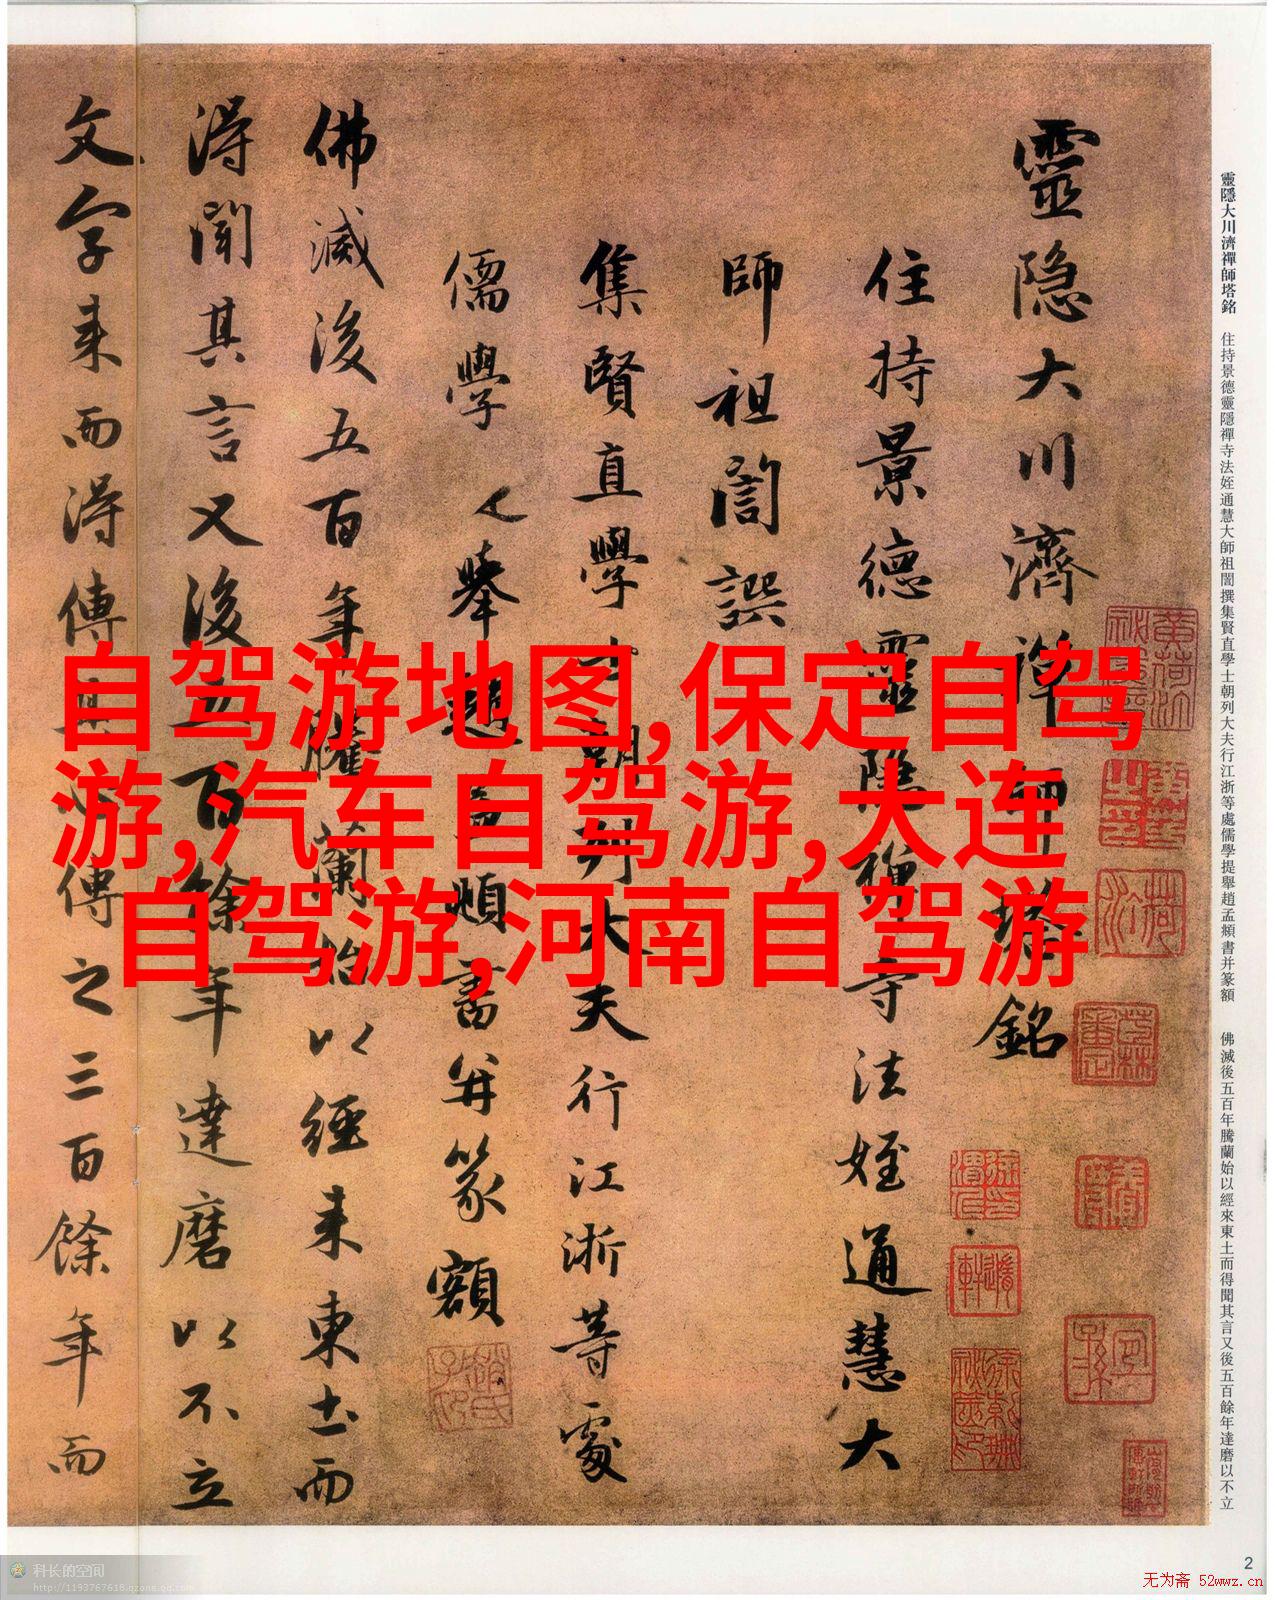 靈隱大川濟禪師塔銘 住持景德靈隱禪寺法姪通慧大師祖誾撰集賢直學士朝列大夫行江浙等處儒學提舉趙孟頫書并篆額 佛滅後五百年騰蘭始以經來東土而得聞其言又後五百餘年達磨以不立
靈隐大川濟禅師塔銘
住持景德靈隐禅寺法姪通慧大
師祖誾譔
集賢直學士朝列大夫行江浙等處
儒學提舉趙孟頫書并篆額
佛滅後五百年騰蘭始以經来東土而
得聞其言又後五百餘年達磨以不立
文字来而得傳其心傳之三百餘年而
自驾游地图,保定自驾
游,汽车自驾游,大连
自驾游,河南自驾游
科长的空间
http://1193767618.qzone.qq.com
2
无为斋 52wwz.cn